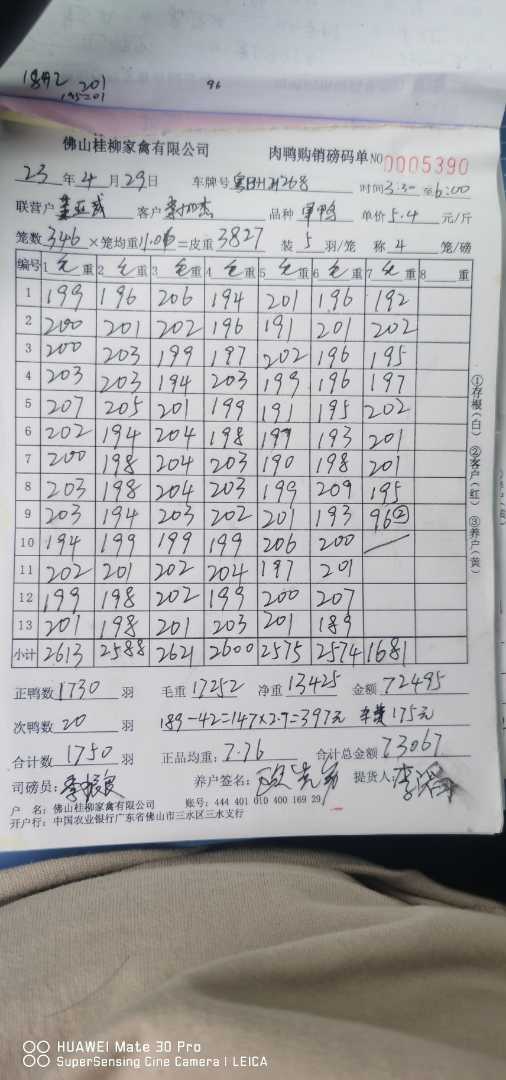 201
96
195=01
佛山桂柳家禽有限公司 肉鸭购销磅码单 NO 0005390
23 年 4 月 29 日 车牌号 时间 3:30 至 6:00
联营户 客户 品种 单价 5.4 元/斤
笼数 346 ×笼均重 11.06 =皮重 3827 装 5 羽/笼 称 4 笼/磅
编号 1 毛 重 2 毛 重 3 毛 重 4 毛 重 5 毛 重 6 毛 重 7 毛 重 8 重
1 199 196 206 194 201 196 192
2 200 201 202 196 191 201 202
3 200 203 199 197 202 196 195
4 203 203 194 203 199 196 197
5 207 205 201 199 191 195 202
6 202 194 204 198 199 193 201
7 200 198 204 203 190 198 201
8 203 198 204 203 199 209 195
9 203 194 203 202 201 193 96②
10 194 199 199 199 206 200
11 202 201 202 204 197 201
12 199 198 202 199 200 207
13 201 198 201 203 201 189
小计 2613 2588 2621 2600 2575 2574 1681
①存根(白) ②客户(红) ③养户(黄)
正鸭数 1730 羽 毛重 17252 净重 13425 金额 72495
次鸭数 20 羽 189-42=147×2.7=397元 车费 175元
合计数 1750 羽 正品均重: 7.76 合计总金额 73067
司磅员: 养户签名: 提货人:
户 名: 佛山桂柳家禽有限公司 账号: 444 401 010 400 169 29
开户行: 中国农业银行广东省佛山市三水区三水支行
HUAWEI Mate 30 Pro
SuperSensing Cine Camera | LEICA